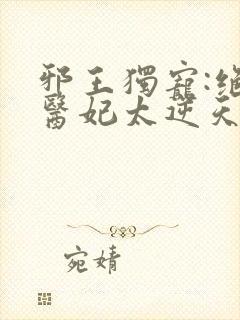 邪王獨寵:絕
醫妃太逆天
宛婧